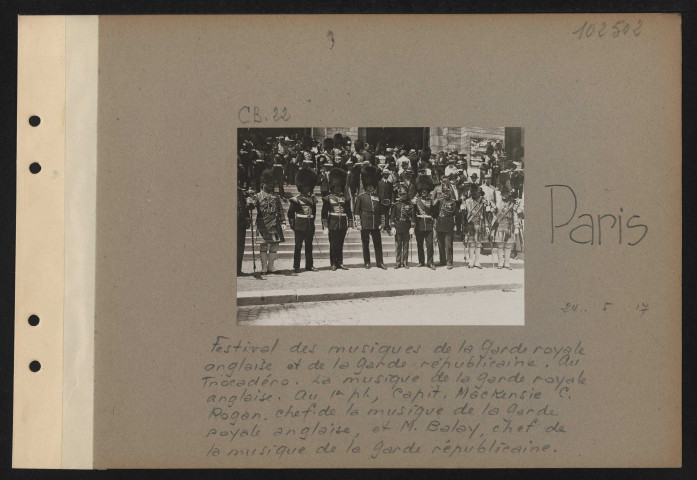 102502
CB. 22
Paris
24. 5 17
Festival des musiques de la Garde royale
anglaise et de la Garde républicaine. Au
Trocadéro. La musique de la garde royale
anglaise. Au 1er pl., Capit. Mackensie C.
Rogan, chef de la musique de la Garde
royale anglaise, et M. Balay, chef de
la musique de la Garde républicaine.